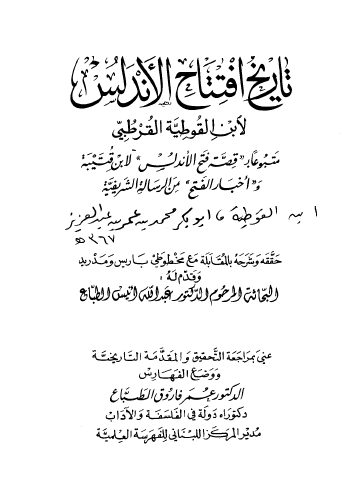 تاريخ افتتاح الأندلس
لابن القوطية القرطبي
متبوعا بـ "قصة فتح الأندلس" لابن قتيبة
و"أخبار الفتح" من الرسالة الشريفية
ابن القوطية، ابو بكر محمد بن عمر بن عبد العزيز
٣٦٧ هـ
حققه وشرحه بالمقابلة مع مخطوطي باريس ومدريد
وقدم له:
البحاثة المرحوم الدكتور عبد الله أنيس الطباع
عني بمراجعة التحقيق والمقدمة التاريخية
ووضع الفهارس
الدكتور عمر فاروق الطباع
دكتوراه دولة في الفلسفة والآداب
مدير المركز اللبناني للفهرسة العلمية